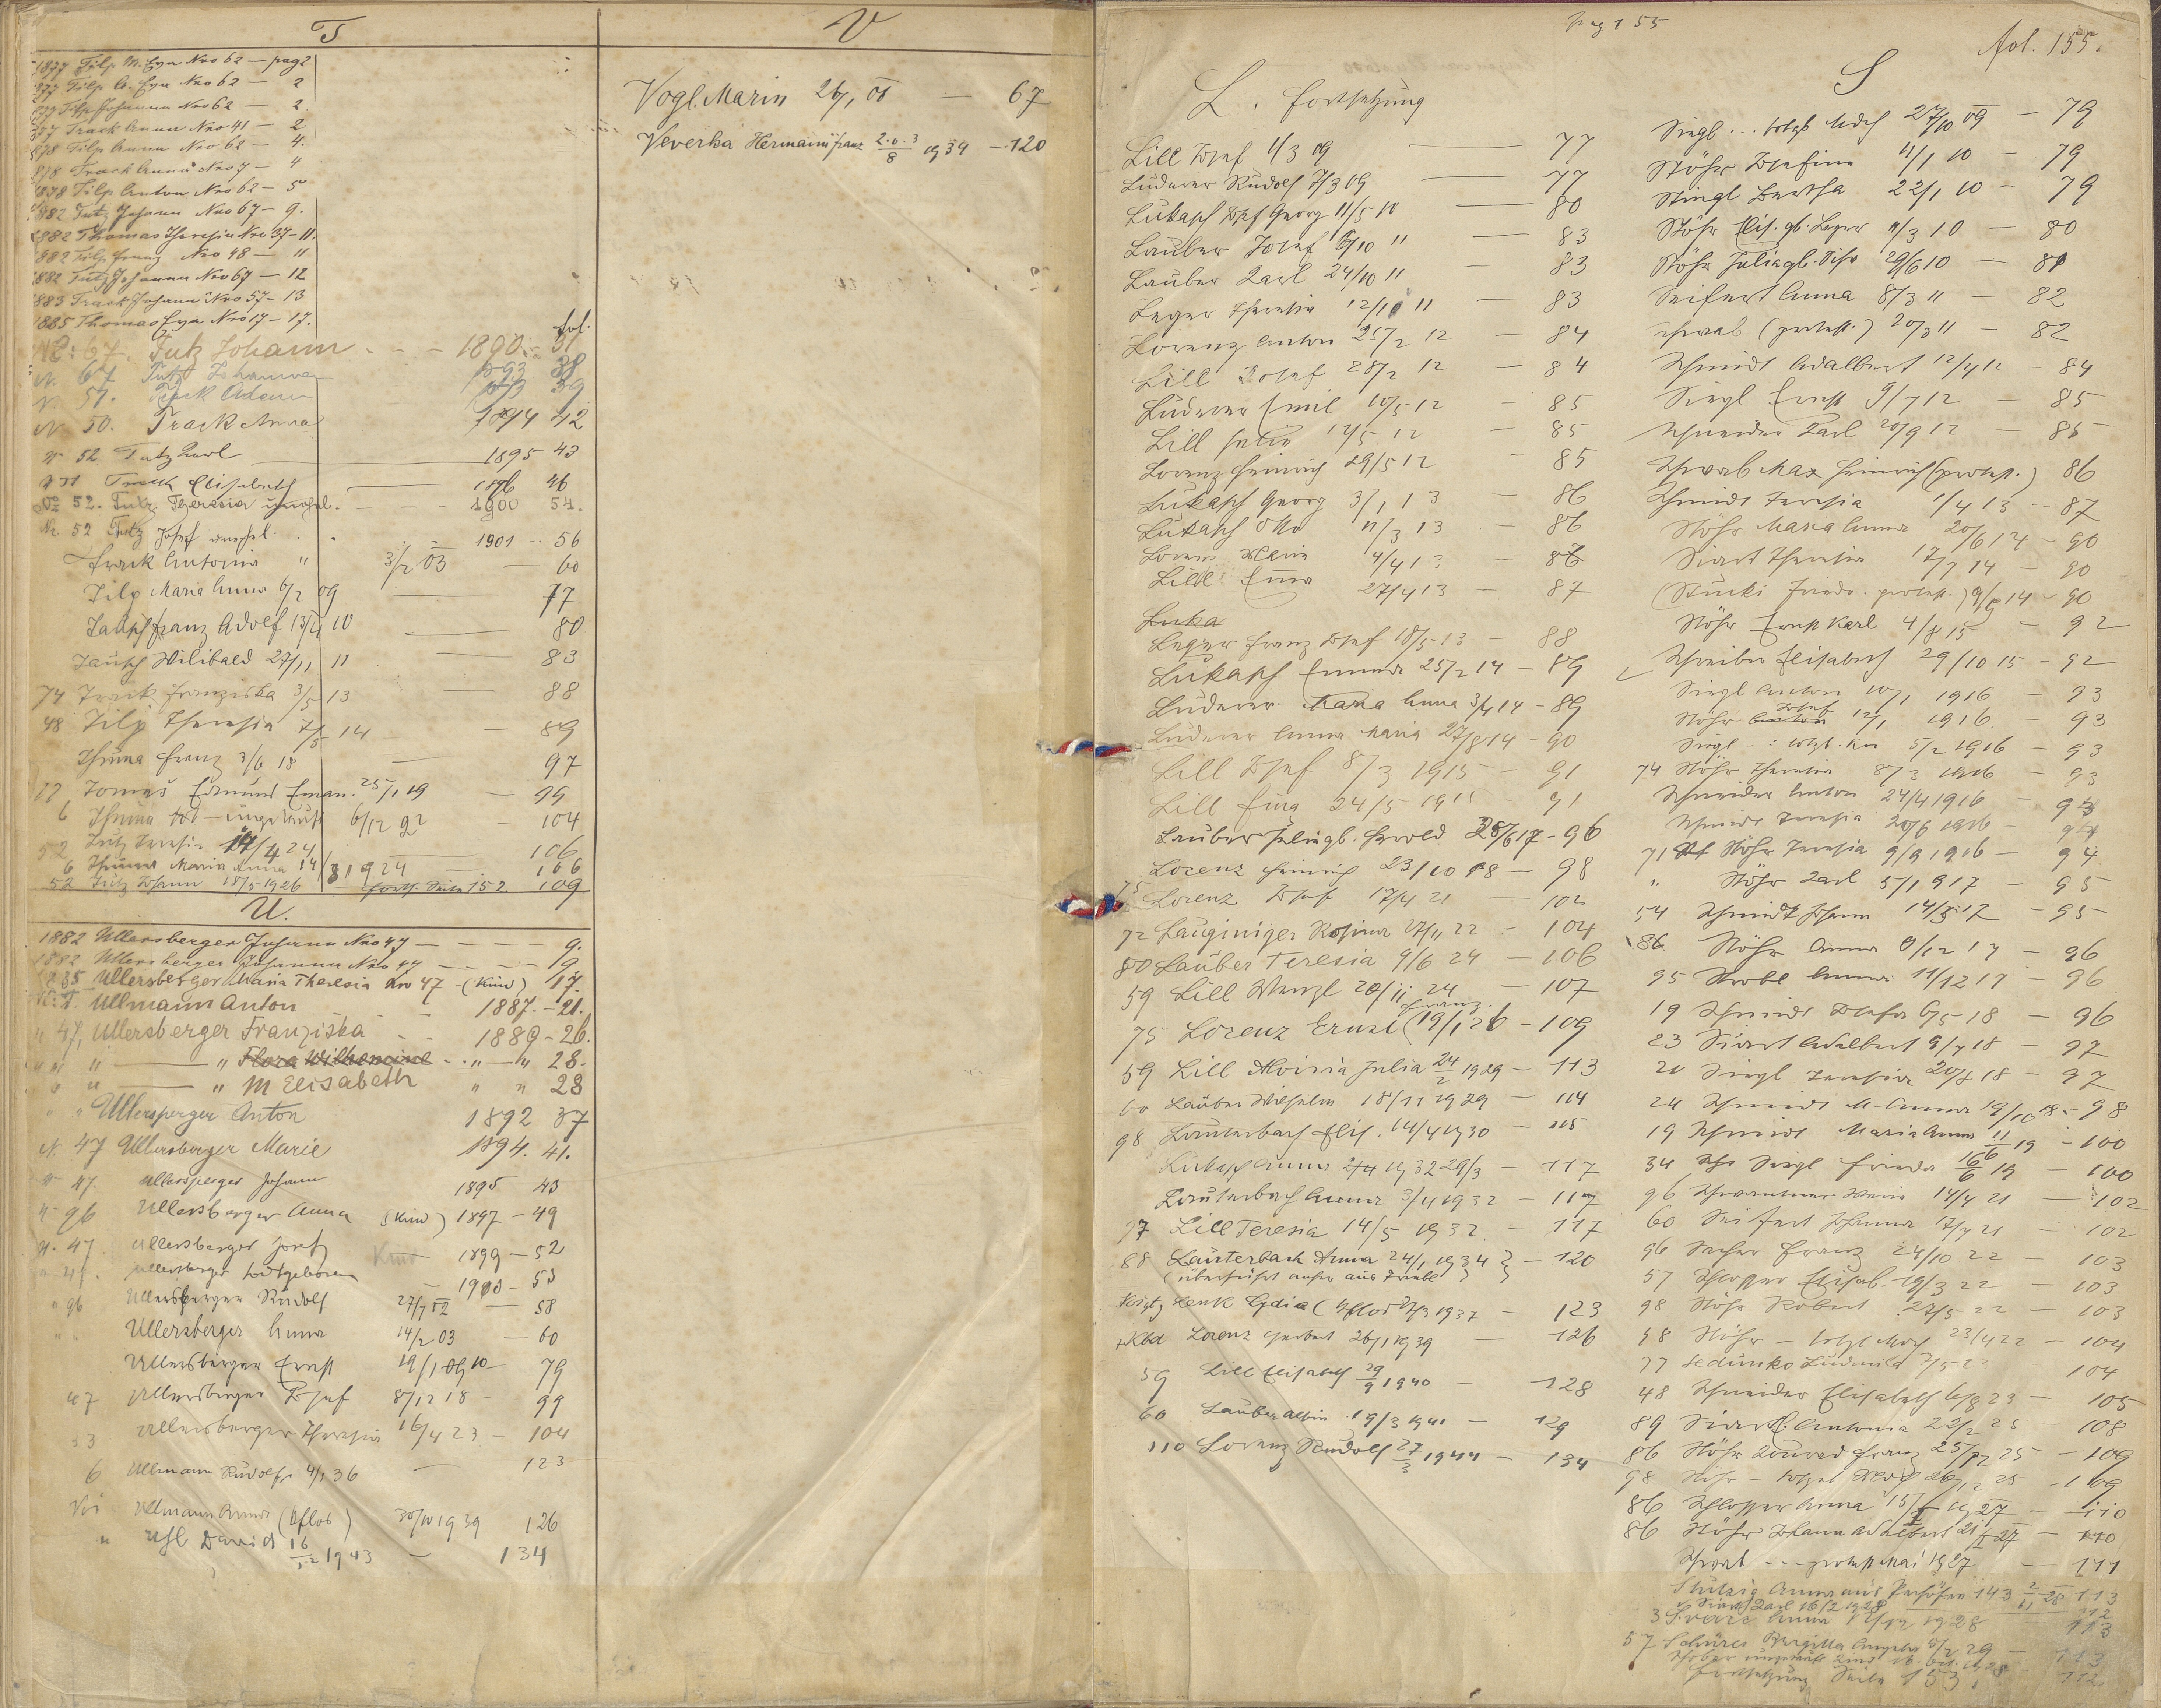 T
1877 Tilp M. Eva Nro 62 — pag 2
1877 Tilp A. Eva Nro 62 — 2
1877 Tilp Johanna Nro 62 — 2.
1877 Track Anna Nro 41 — 2
1878 Tilp Anna Nro 62 — 4.
1878 Track Anna Nro 7 — 4
1878 Tilp Anton Nro 62 — 5
1882 Tutz Johann Nro 67 — 9.
1882 Thomas Theresia Nro 37 — 11.
1882 Tilp Franz Nro 48 — 11
1882 Tutz Johanna Nro 67 — 12
1883 Track Johann Nro 57 — 13
1885 Thomas Eva Nro 17 — 17.
fol.
No: 67. Tutz Johann - - - 1890. - 31
N. 67 Tutz Johanna 1893 38
N. 57. Track Adam 39
N. 50. Track Anna 1894 42
N 52 Tutz Karl 1895 43
Track Elisabeth 1896 46
No 52. Tutz Theresia unehel. - - - 1900 54.
Nr. 52 Tutz Josef unehel. . . 1901 - 56
Track Antonia " 3/2 03 — 60
Tilp Maria Anna 6/2 09 — 77
Tausch Franz Adolf 13/4 10 — 80
Tausch Wilibald 27/11 11 — 83
74 Track Franziska 3/5 13 — 88
48 Tilp Theresia 7/5 14 — 89
Thuma Franz 3/6 18 — 97
77 Tomaš Edmund Eman. 25/1 19 — 99
6 Thuma tot - ungetauft 6/12 22 — 104
52 Tutz Teresia 14/4 24 — 106
6 Thuma Maria Anna 14/3 1924 106
52 Tutz Johann 18/5 1926 Forts. Seite 152 109
U.
1882 Ullersberger Johann Nro 47 — — — 9.
1882 Ullersberger Johanna Nro 47 — — — 9
1885 Ullersberger Maria Theresia Nro 47 - (Kind) 17.
Ullmann Anton - - 1887. - 21.
" 47, Ullersberger Franziska - - 1889 - 26.
" " " — " Flora Wilhemine - - " — " 28.
" " — " M Elisabeth " " 28
" " Ullersperger Anton 1892 37
N. 47 Ullersberger Marie 1894. 41.
N 47. Ullersperger Johann 1895 43
N - 96 Ullersberger Anna (Kind) 1897 - 49
N. 47. Ullersberger Josef Kind 1899 - 52
Ullersberger todtgeboren — 1900 - 53
" 96 Ullersberger Rudolf 27/7 02 — 58
" " Ullersberger Anna 14/2 03 — 60
Ullersberger Ernst 19/1 10 — 79
47 Ullersberger Josef 8/12 18 — 99
Ullersberger Theresia 16/4 23 — 104
6 Ullmann Rudolf 4/1 36 — 123
Ullmann Anna (Aflob) 30/10 1939 126
" Uhl David 16/12 1943 — 134
V
Vogl. Marin 26/1 01 — 67
Veverka Hermann Franz 2.u.3/8 1934 — 120
pag 155
fol. 155.
L. Fortsetzung
Lill Josef 1/3 09 — 77
Luderer Rudolf 7/3 09 — 77
Lukasch Josef Georg 11/5 10 — 80
Lauber Josef 6/10 11 — 83
Lauber Karl 24/10 11 — 83
Leger Theresia 12/11 11 — 83
Lorenz Anton 25/2 12 — 84
Lill Josef 28/2 12 — 84
Luderer Emil 10/5 12 — 85
Lill Julia 12/5 12 — 85
Lorenz Heinrich 29/5 12 — 85
Lukasch Georg 3/1 13 — 86
Lukasch Otto 11/3 13 — 86
Lorenz Maria 4/4 13 — 86
Lill Ema 27/4 13 — 87
Luka
Leger Franz Josef 18/5 13 — 88
Lukasch Emma 25/2 14 — 89
Luderer Maria Anna 3/4 14 — 89
Luderer Anna Maria 27/8 14 — 90
Lill Josef 8/3 1915 — 91
Lill Ema 24/5 1915 — 91
Lauber Julia gb. Herold 28/6 17 — 96
Lorenz Heinrich 23/10 18 — 98
75 Lorenz Josef 17/4 21 — 102
72 Lauginiger Rosina 27/11 22 — 104
80 Lauber Teresia 9/6 24 — 106
59 Lill Wenzl 20/11 24 — 107
75 Lorenz Ernst (Franz. 19/1 26 — 109
59 Lill Aloisia Julia 24/2 1929 — 113
60 Lauber Wilhelm 18/11 1929 — 114
98 Lauterbach Elis. 14/4 1930 — 115
Lukasch Anna 1932 29/3 — 117
Lauterbach Anna 3/4 1932 — 117
77 Lill Teresia 14/5 1932 — 117
88 Lauterbach Anna 24/1 1934 } — 120
Lenk Lydia (Aflob 1937 — 123
Lorenz Herbert 26/1 1939 — 126
59 Lill Elisabeth 29/9 1940 — 128
60 Lauber Albin 19/3 1941 — 129
110 Lorenz Rudolf 27/3 1944 — 134
S
Siegl ... totgb Mdch 27/10 09 — 79
Stöhr Josefine 11/1 10 — 79
Stingl Bertha 22/1 10 — 79
Stöhr Elis. gb. Leger 11/3 10 — 80
Stöhr Julia gb. 29/6 10 — 81
Seifert Anna 8/3 11 — 82
Schwab (protest.) 20/3 11 — 82
Schmidt Adalbert 12/4 12 — 84
Siegl Ernst 9/7 12 — 85
Schneider Karl 20/9 12 — 85
Schwab Max Heinrich (protest.) 86
Schmidt Teresia 1/4 13 — 87
Stöhr Maria Anna 20/6 14 — 90
Siart Theresia 17/7 14 — 90
(Stücki Friedr. protest.) 9/9 14 — 90
Stöhr Ernst Karl 4/8 15 — 92
Schreiber Elisabeth 29/10 15 — 92
Siegl Anton 10/1 1916 — 93
Stöhr Anton Josef 12/1 1916 — 93
Siegl - : totgb. Kn 5/2 1916 — 93
74 Stöhr Theresia 8/3 1916 — 93
Schneider Anton 24/4 1916 — 93
Schmidt Teresia 20/6 1916 — 94
71 Stöhr Teresia 9/9 1916 — 94
" Stöhr Karl 5/1 1917 — 95
54 Schmidt Johann 14/5 17 — 95
86 Stöhr Anna 9/12 17 — 96
95 Strobl Anna 11/12 17 — 96
19 Schmidt Josefa 6/5 18 — 96
23 Siart Adalbert 9/7 18 — 97
21 Siegl Teresia 20/8 18 — 97
24 Schmidt M. Anna 19/10 18 — 98
19 Schmidt Maria Anna 11/6 19 — 100
34 Siegl Frieda 16/6 19 — 100
96 Schwantner Maria 14/4 21 — 102
60 Seifert Johanna 17/7 21 — 102
96 Franz 24/10 22 103
57 Schlosser Elisab. 19/3 22 — 103
98 Stöhr Robert 27/5 22 — 103
98 Stöhr — totgb Mdch 23/4 22 — 104
77 Sedunko Ludmila 104
48 Schneider Elisabeth 6/8 23 — 105
89 Siart Antonia 22/2 25 — 108
86 Stöhr Konrad Franz 25/12 25 — 109
98 Stöhr — totgeb 26/12 25 — 109
86 Schlosser Anna 15/I 1927 — 110
86 Stöhr Johann Adalbert 21/I 27 — 110
Schwab - - - protest Mai 1927 — 111
Anna aus 143 2/11 28 113
Siart Karl 16/2 1928 112
3 Anna 12/12 1928 113
57 Brigitta Angela 8/2 29 — 113
Fortsetzung Seite 153,